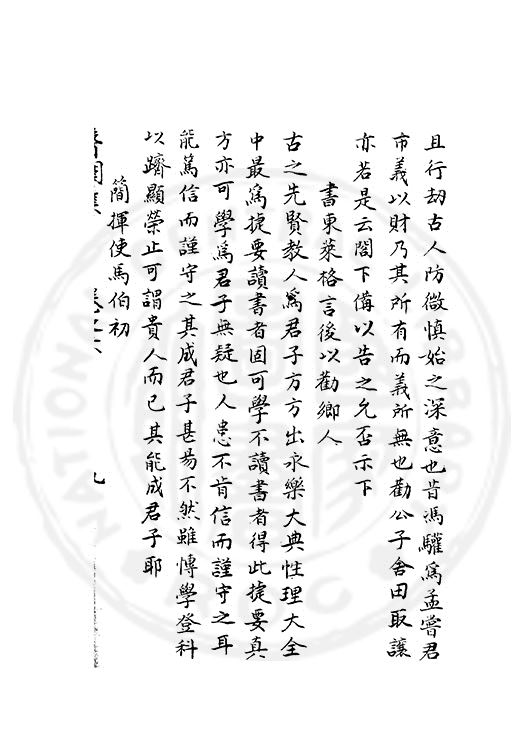 且行劫古人防微慎始之深意也昔馮驩爲孟嘗君
市義以財乃其所有而義所無也勸公子舍田取讓
亦若是云閤下備以告之允否示下
書東萊格言後以勸鄉人
古之先賢教人爲君子方方出永樂大典性理大全
中最爲捷要讀書者固可學不讀書者得此捷要真
方亦可學爲君子無疑也人患不肯信而謹守之耳
能篤信而謹守之其成君子甚易不然雖博學登科
以躋顯榮止可謂貴人而已其能成君子耶
簡揮使馬伯初
卷之六 九